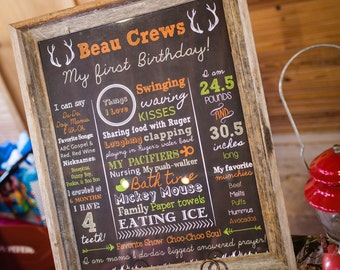 Beau Crews
My first Birthday!
I can say
Da Da,
Dog, Mama,
Uh Oh
Favorite Songs:
ABC Gospel &
Red, Red Wine
Nicknames:
I crawled at
6 MONTHS
I HAVE
4
teeth!
Things
I Love
Swinging
waving
KISSES
Sharing food with Ruger
Laughing clapping
playing in Ruger's water bowl
MY PACIFIERS
Nursing My push walker
Bath time
Mickey Mouse
Family Paper towels
EATING ICE
I am
24.5
POUNDS
AND
30.5
inches
long
My favorite
munchies
Beef
Melts
Puffs
Hummus
Avocados
Favorite Show: Choo-Choo Soul
I am mama & da da's biggest answered prayer!